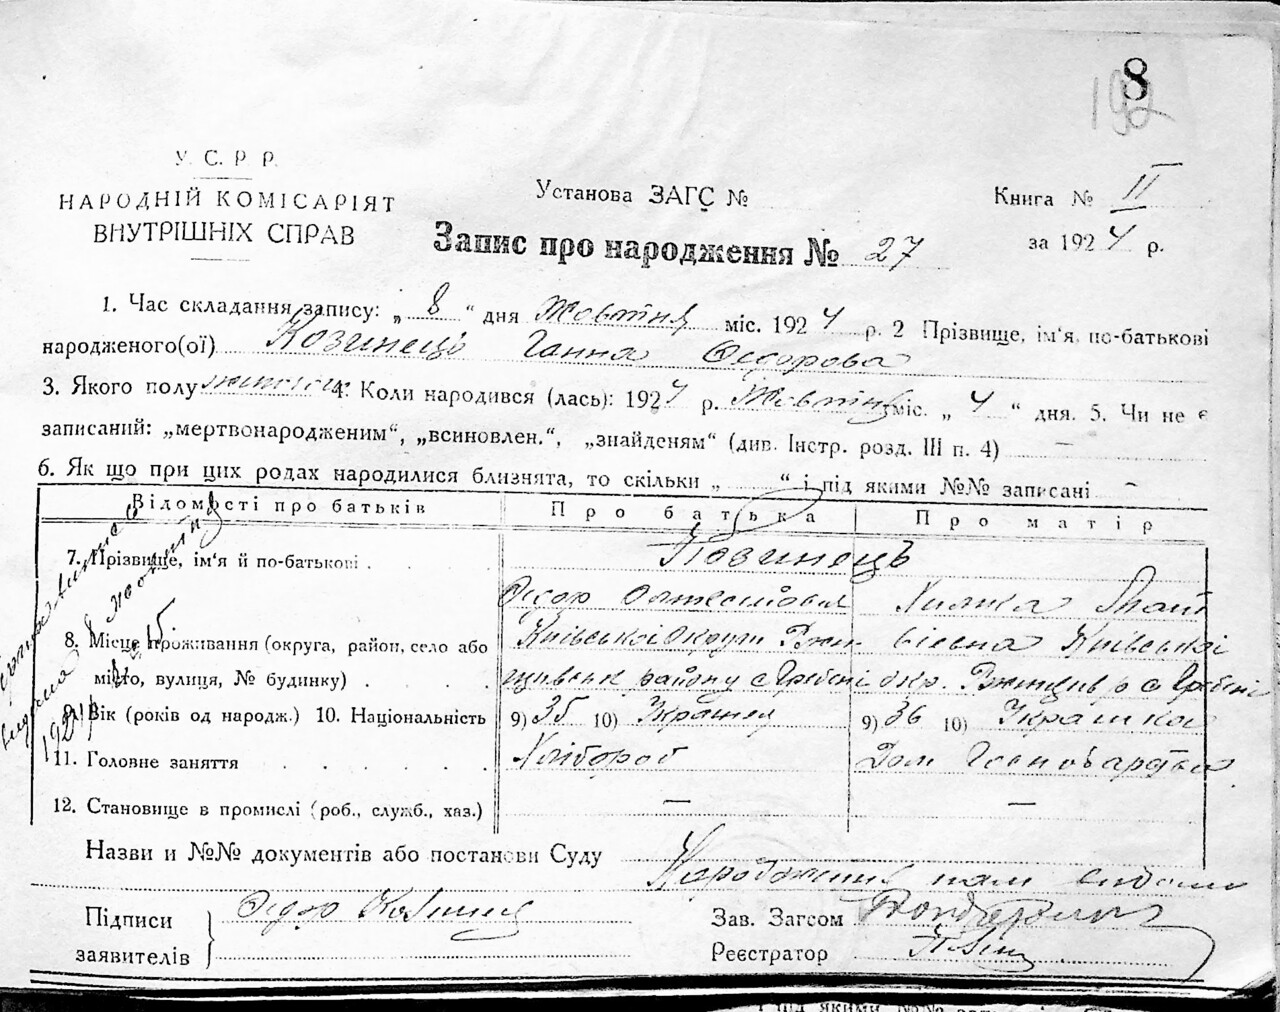 8
192
У. С. Р. Р.
НАРОДНІЙ КОМІСАРІЯТ
ВНУТРІШНІХ СПРАВ
Установа ЗАГС №
Книга № II
за 1924 р.
Запис про народження № 27
1. Час складання запису: „ 8 “ дня Жовтня міс. 1924 р. 2 Прізвище, ім'я, по-батькові
народженого(ої) Козинець Ганна Федорова
3. Якого полу 4. Коли народився (лась): 1924 р. Жовтня міс. „ 4 “ дня. 5. Чи не є
записаний: „мертвонародженим“, „всиновлен.“, „знайденям“ (див. Інстр. розд. III п. 4) —
6. Як що при цих родах народилися близнята, то скільки „ “ і під якими №№ записані -
Відомості про батьків Про батька Про матір
7. Прізвище, ім'я й по-батькові Козинець
8. Місце проживання (округа, район, село або Київської округи Київської
місто, вулиця, № будинку) району с Гребені окр. с Гребені
9. Вік (років од народж.) 10. Національність 9) 35 10) 9) 36 10) Українка
11. Головне заняття Хлібороб Дом.
12. Становище в промислі (роб., служб., хаз.) — —
Назви и №№ документів або постанови Суду
Народження нам
Підписи
заявителів
Зав. Загсом
Реєстратор